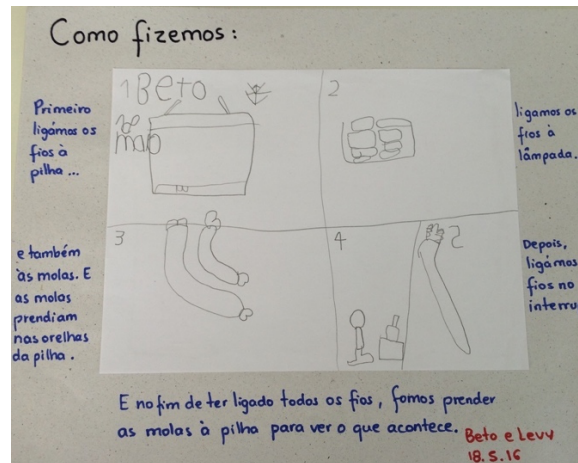 Como fizemos:
Primeiro
ligámos os
fios à
pilha ...
1 Beto
18
maio
2
ligamos os
fios à
lâmpada.
e também
às molas. E
as molas
prendiam
nas orelhas
da pilha.
3
4
2
Depois,
ligámos
fios no
interru
E no fim de ter ligado todos os fios, fomos prender
as molas à pilha para ver o que acontece.
Beto e Levy
18.5.16